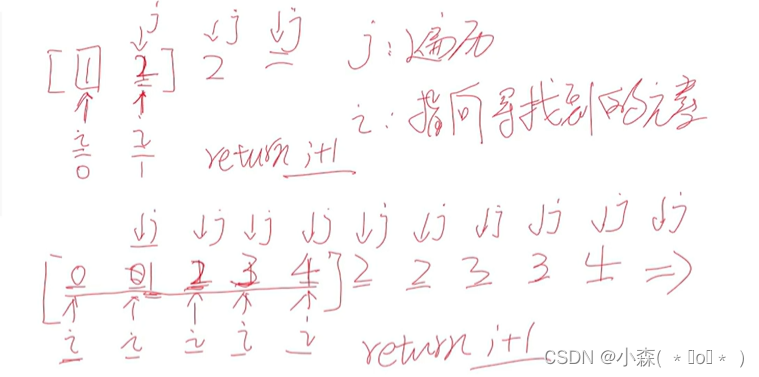 j j j
[ 1 2 ] 2 j:遍历
i i i:指向寻找到的元素
0 1 return i+1
j j j j j j j j j j
[ 0 1 2 3 4 ] 2 2 3 3 4 =>
i i i i i return i+1
CSDN @小森( ﹡ˆoˆ﹡ )